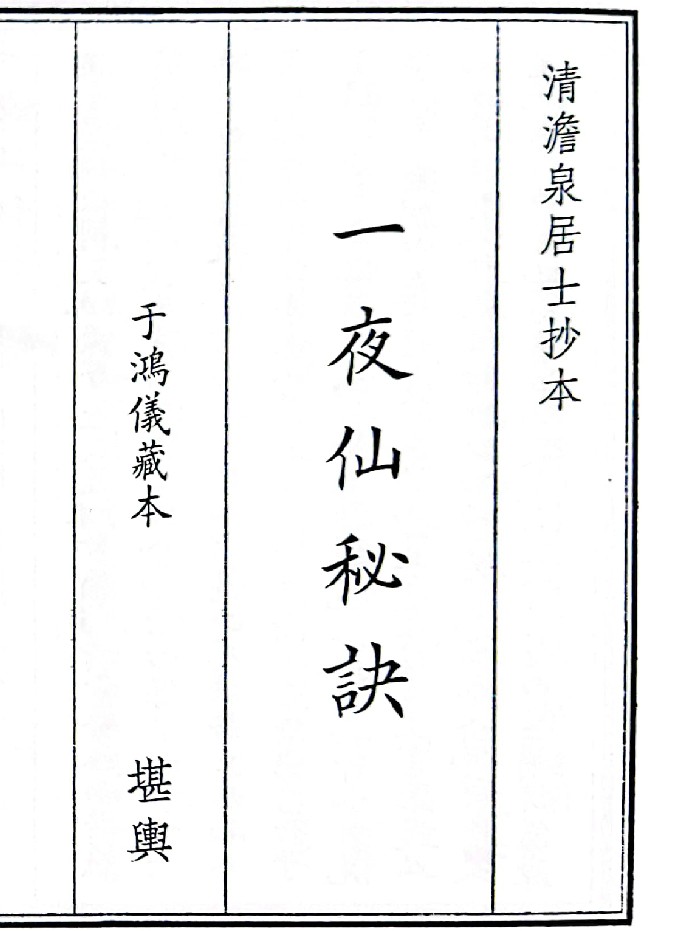 清澹泉居士抄本
一夜仙秘訣
于鴻儀藏本
堪輿